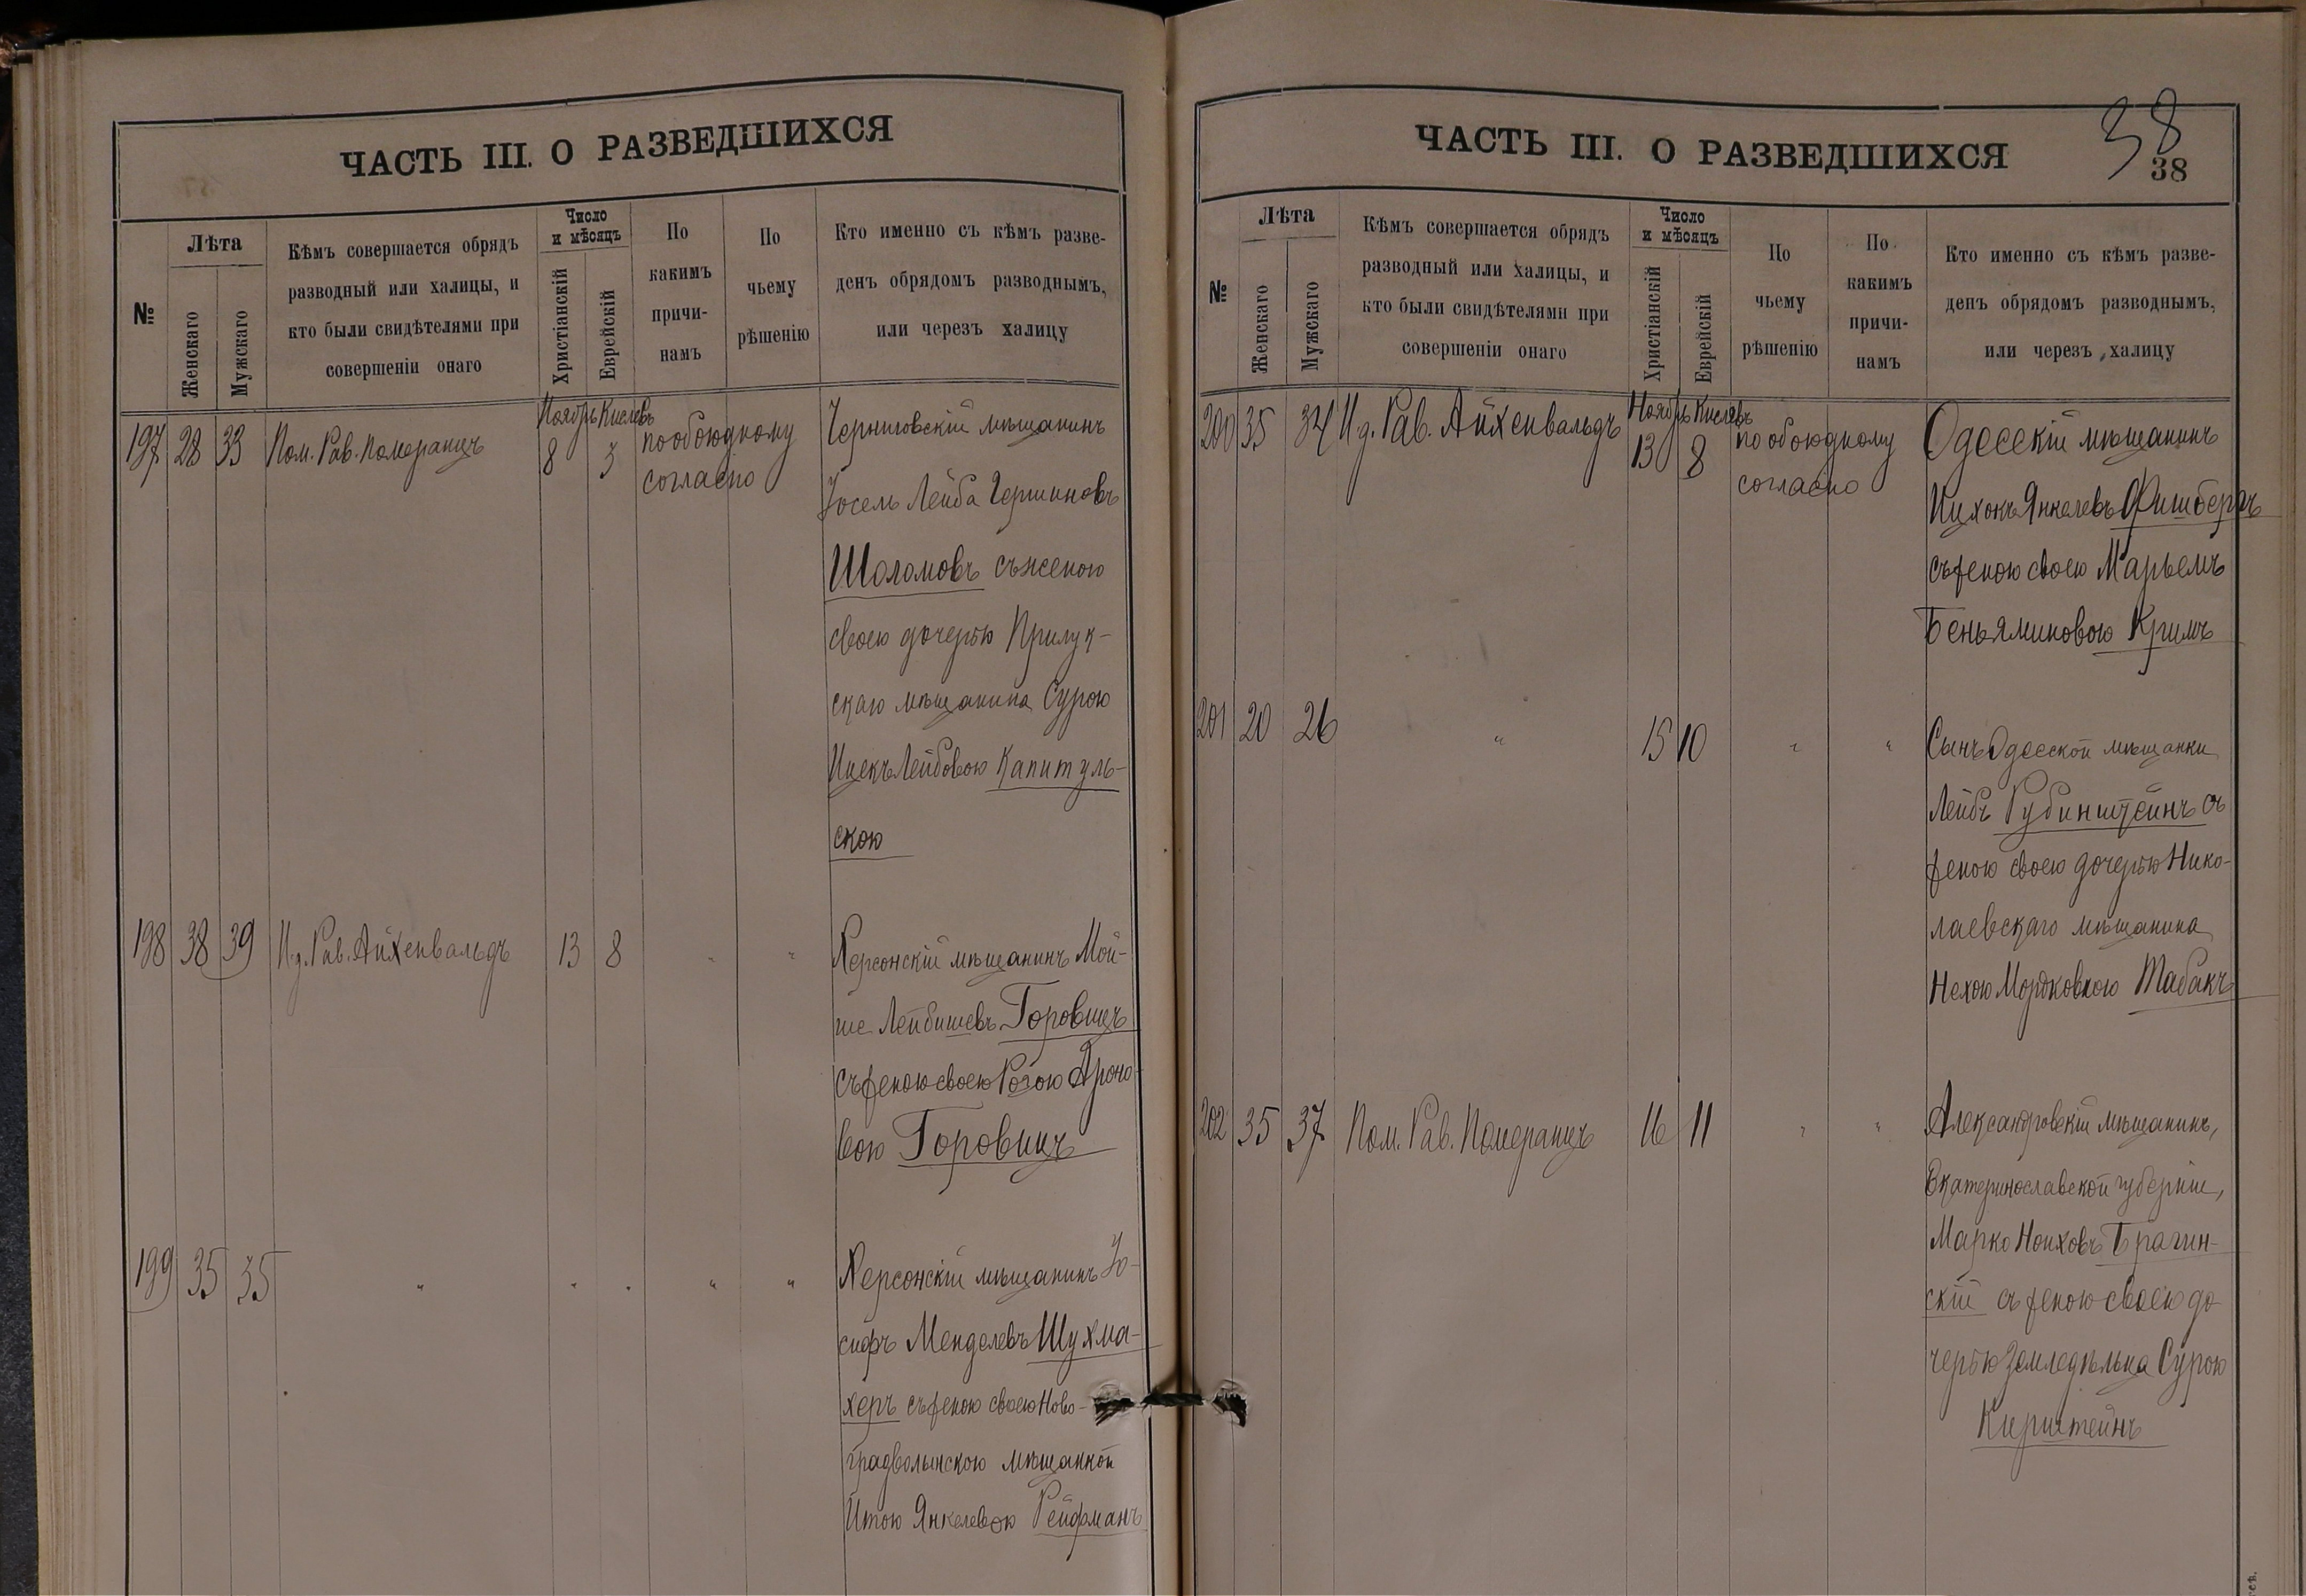 ЧАСТЬ III. О РАЗВЕДШИХСЯ
№
Лѣта
Женскаго
Мужскаго
Кѣмъ совершается обрядъ
разводный или халицы, и
кто были свидѣтелями при
совершеніи онаго
Число
и мѣсяцъ
Христіанскій
Еврейскій
По
какимъ
причи-
намъ
По
чьему
рѣшенію
Кто именно съ кѣмъ разве-
денъ обрядомъ разводнымъ,
или черезъ халицу
Ноябрь Кислевъ
197 28 33 Пом. Рав. Померанцъ 8 3 по обоюдному
согласію
Черниговскій мѣщанинъ
Іосель Лейба Гершиновъ
Шоломовъ съ женою
своею дочерью Прилук-
скаго мѣщанина Сурою
Ицекъ Лейбовою Капитуль-
скою
198 38 39 И. д. Рав. Айхенвальдъ 13 8 " "
Херсонскій мѣщанинъ Мой-
ше Лейбишевъ Горовицъ
съ женою своею Розою Ароно-
вою Горовицъ
199 35 35 " " " " "
Херсонскій мѣщанинъ Іо-
сифъ Менделевъ Шухма-
херъ съ женою своею Ново-
градволынскою мѣщанкой
Итою Янкелевою Рейфманъ
ЧАСТЬ III. О РАЗВЕДШИХСЯ
38
38
№
Лѣта
Женскаго
Мужскаго
Кѣмъ совершается обрядъ
разводный или халицы, и
кто были свидѣтелями при
совершеніи онаго
Число
и мѣсяцъ
Христіанскій
Еврейскій
По
чьему
рѣшенію
По
какимъ
причи-
намъ
Кто именно съ кѣмъ разве-
денъ обрядомъ разводнымъ,
или черезъ халицу
Ноябрь Кислевъ
200 35 34 И. д. Рав. Айхенвальдъ 13 8 по обоюдному
согласію
Одесскій мѣщанинъ
Ицхокъ Янкелевъ Фишбергъ
съ женою своею Марьемъ
Беньяминовою Кримъ
201 20 26 " 15 10 " "
Сынъ Одесской мѣщанки
Лейбъ Рубинштейнъ съ
женою своею дочерью Нико-
лаевскаго мѣщанина
Нехою Мордковною Табакъ
202 35 37 Пом. Рав. Померанцъ 16 11 " "
Александровскій мѣщанинъ,
Екатеринославской губерніи,
Марко Ноиховъ Брагин-
скій съ женою своею до-
черью земледѣльца Сурою
Кирштейнъ